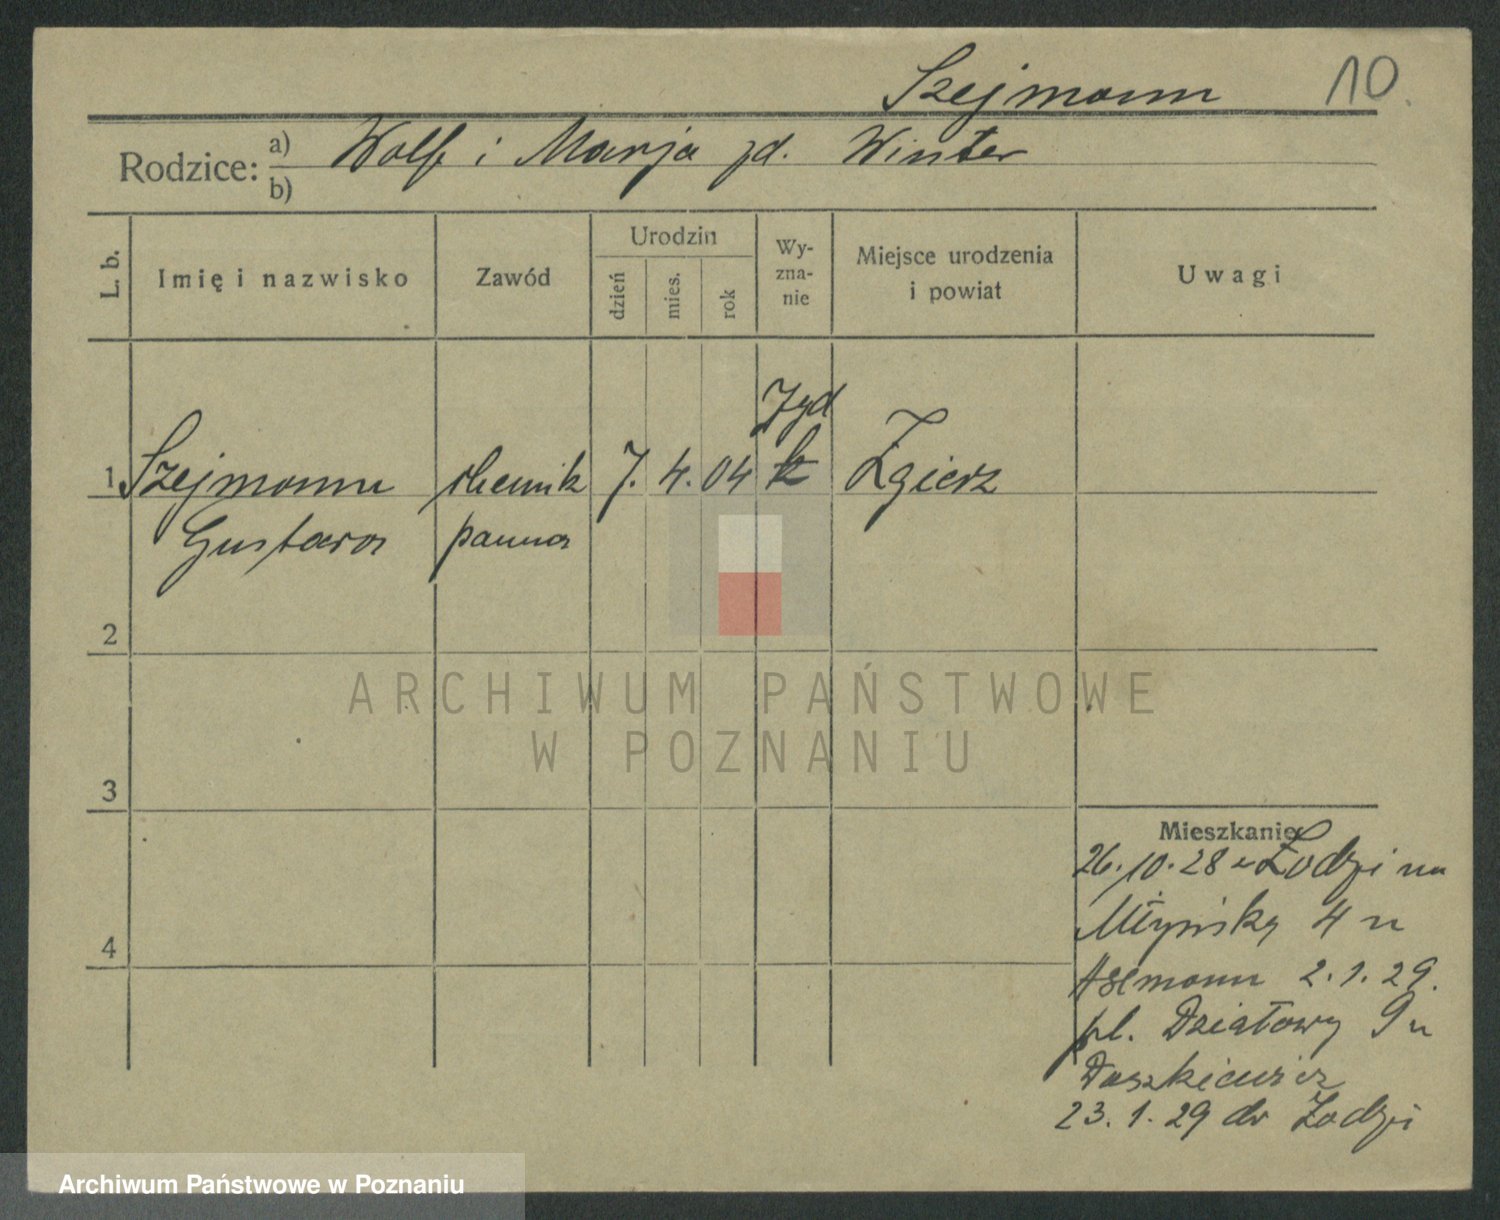 Szejmann 10.
Rodzice: a) Wolf i Marja zd. Winter
b)
L. b.
Imię i nazwisko
Zawód
Urodzin
dzień
mies.
rok
Wy-
zna-
nie
Miejsce urodzenia
i powiat
Uwagi
żyd
1 Szejmann chemik 7. 4. 04 k Zgierz
Gustawa panna
2
3
4
Mieszkanie
26.10.28 z Łodzi na
Młyńską 4 u
2.1.29.
pl. Działowy 9 u
Daszkiewicz
23.1.29 do Łodzi
ARCHIWUM PAŃSTWOWE
W POZNANIU
Archiwum Państwowe w Poznaniu